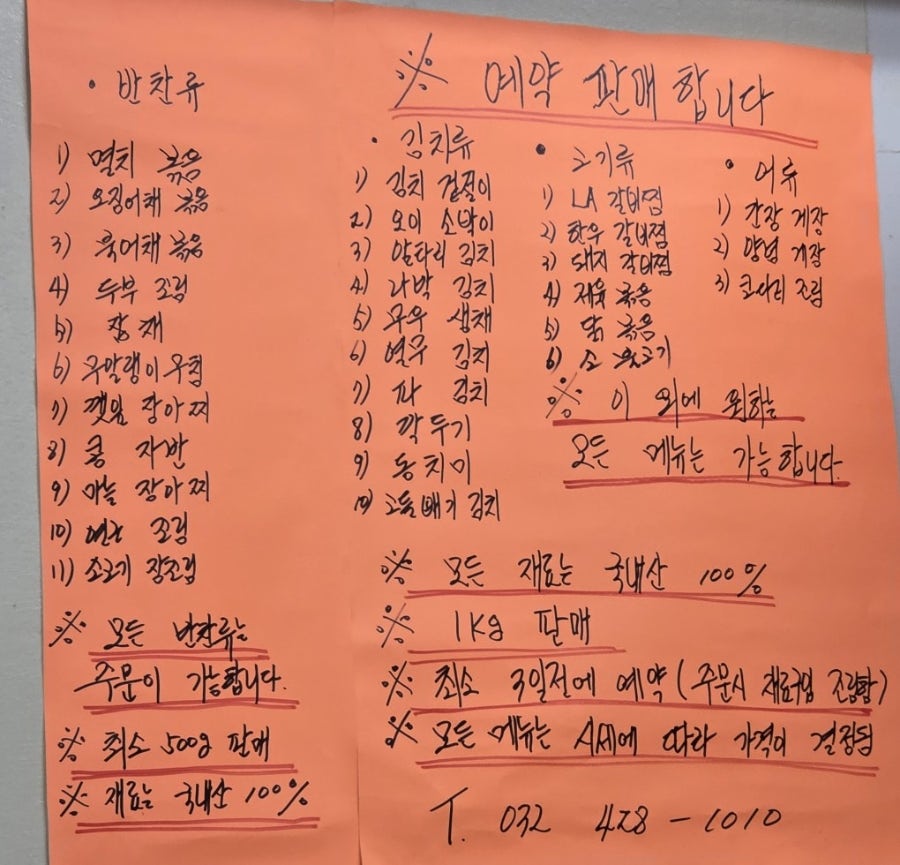 · 반찬류
1) 멸치 볶음
2) 오징어채 볶음
3) 북어채 볶음
4) 두부 조림
5) 잡채
6) 무말랭이무침
7) 깻잎 장아찌
8) 콩 자반
9) 마늘 장아찌
10) 연근 조림
11) 소고기 장조림
※ 모든 반찬류는
주문이 가능합니다.
※ 최소 500g 판매
※ 재료는 국내산 100%
※ 예약 판매합니다
· 김치류
1) 김치 겉절이
2) 오이 소박이
3) 알타리 김치
4) 나박 김치
5) 무우 생채
6) 열무 김치
7) 파 김치
8) 깍두기
9) 동치미
10) 고들빼기 김치
· 고기류
1) LA 갈비찜
2) 한우 갈비찜
3) 돼지 갈비찜
4) 제육 볶음
5) 닭 볶음
6) 소 불고기
· 어류
1) 간장 게장
2) 양념 게장
3) 코다리 조림
※ 이 외에 원하는
모든 메뉴는 가능합니다.
※ 모든 재료는 국내산 100%
※ 1Kg 판매
※ 최소 3일전에 예약 (주문시 재료구입 조립함)
※ 모든 메뉴는 시세에 따라 가격이 결정됨
T. 032 428-1010